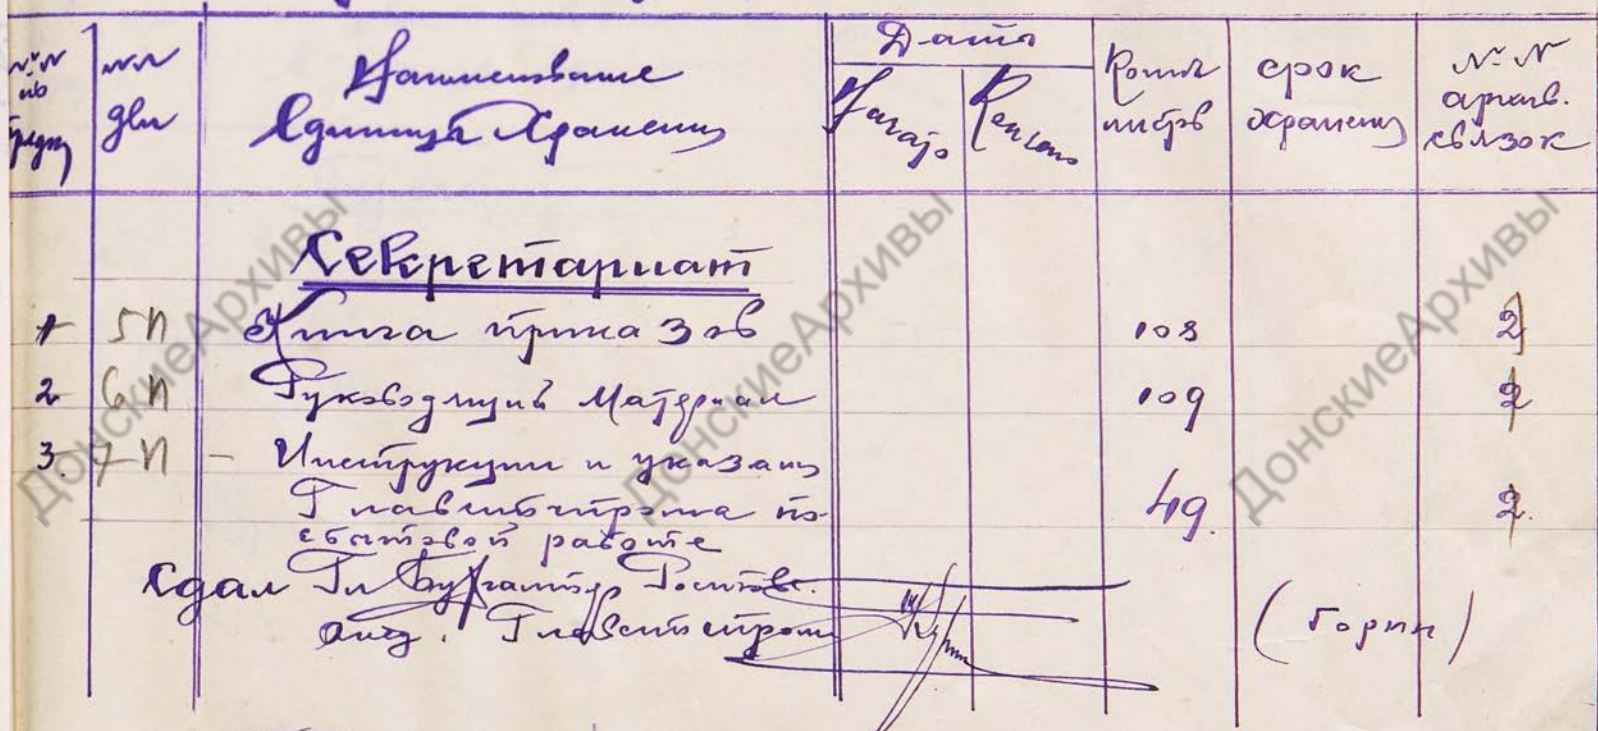 №№ по порядку
№№ дел
Наименование Единицы Хранения
Дата
Начало
Конец
Колич листов
срок хранения
№№ архив. связок
Секретариат
1 5п Книга приказов 108 2
2 6п Руководящий Материал 109 2
3. 7п – Инструкции и указания
Главснабпрома по 49. 2.
сбытовой работе
Сдал Гл Бухгалтер Ростовс.
отд.
(Горин)
ДонскиеАрхивы
ДонскиеАрхивы
ДонскиеАрхивы